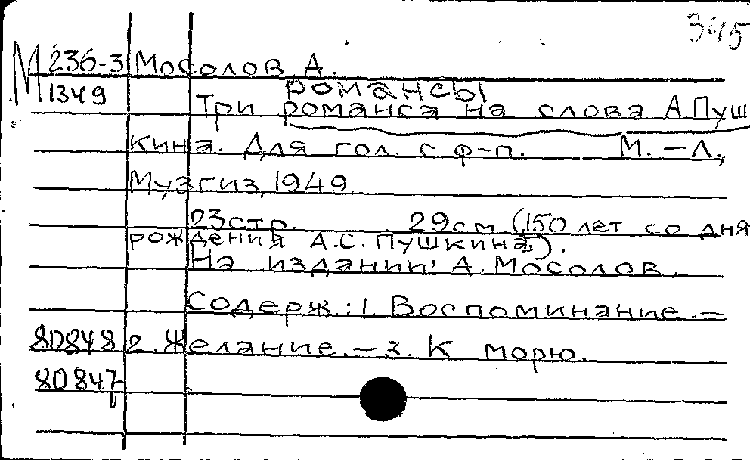 345
М 236-3 Мосолов А.
1349 романсы
Три романса на слова А.Пуш
кина. Для гол. с ф-п. М.-Л.,
Музгиз, 1949.
23стр. 29см (150 лет со дня
рождения А.С. Пушкина).
На издании: А. Мосолов.
Содерж.: 1. Воспоминание. –
80848 2. Желание. – 3. К морю.
80847